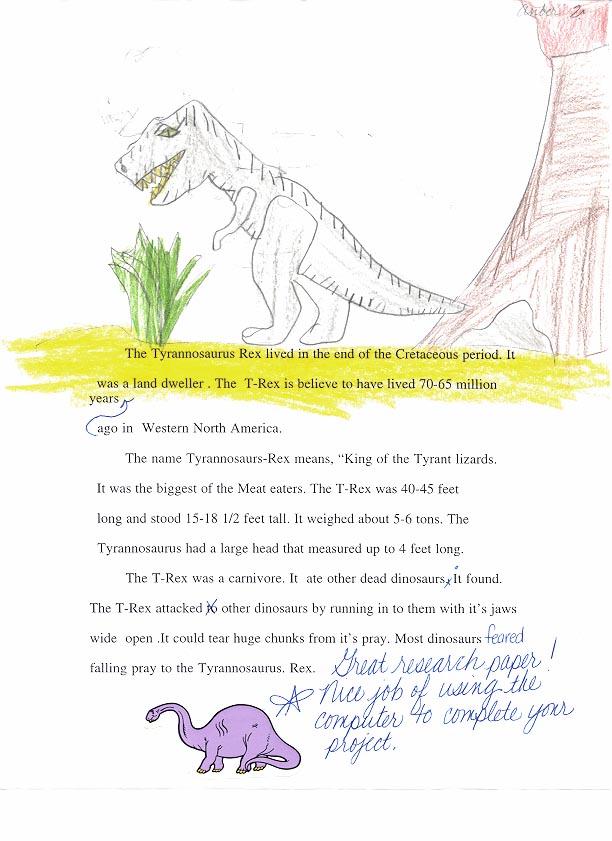 The Tyrannosaurus Rex lived in the end of the Cretaceous period. It
was a land dweller . The T-Rex is believe to have lived 70-65 million
years
ago in Western North America.
The name Tyrannosaurs-Rex means, “King of the Tyrant lizards.
It was the biggest of the Meat eaters. The T-Rex was 40-45 feet
long and stood 15-18 1/2 feet tall. It weighed about 5-6 tons. The
Tyrannosaurus had a large head that measured up to 4 feet long.
The T-Rex was a carnivore. It ate other dead dinosaurs, It found.
The T-Rex attacked to other dinosaurs by running in to them with it’s jaws
wide open .It could tear huge chunks from it’s pray. Most dinosaurs feared
falling pray to the Tyrannosaurus. Rex.
Great research paper!
Nice job of using the
computer to complete your
project.